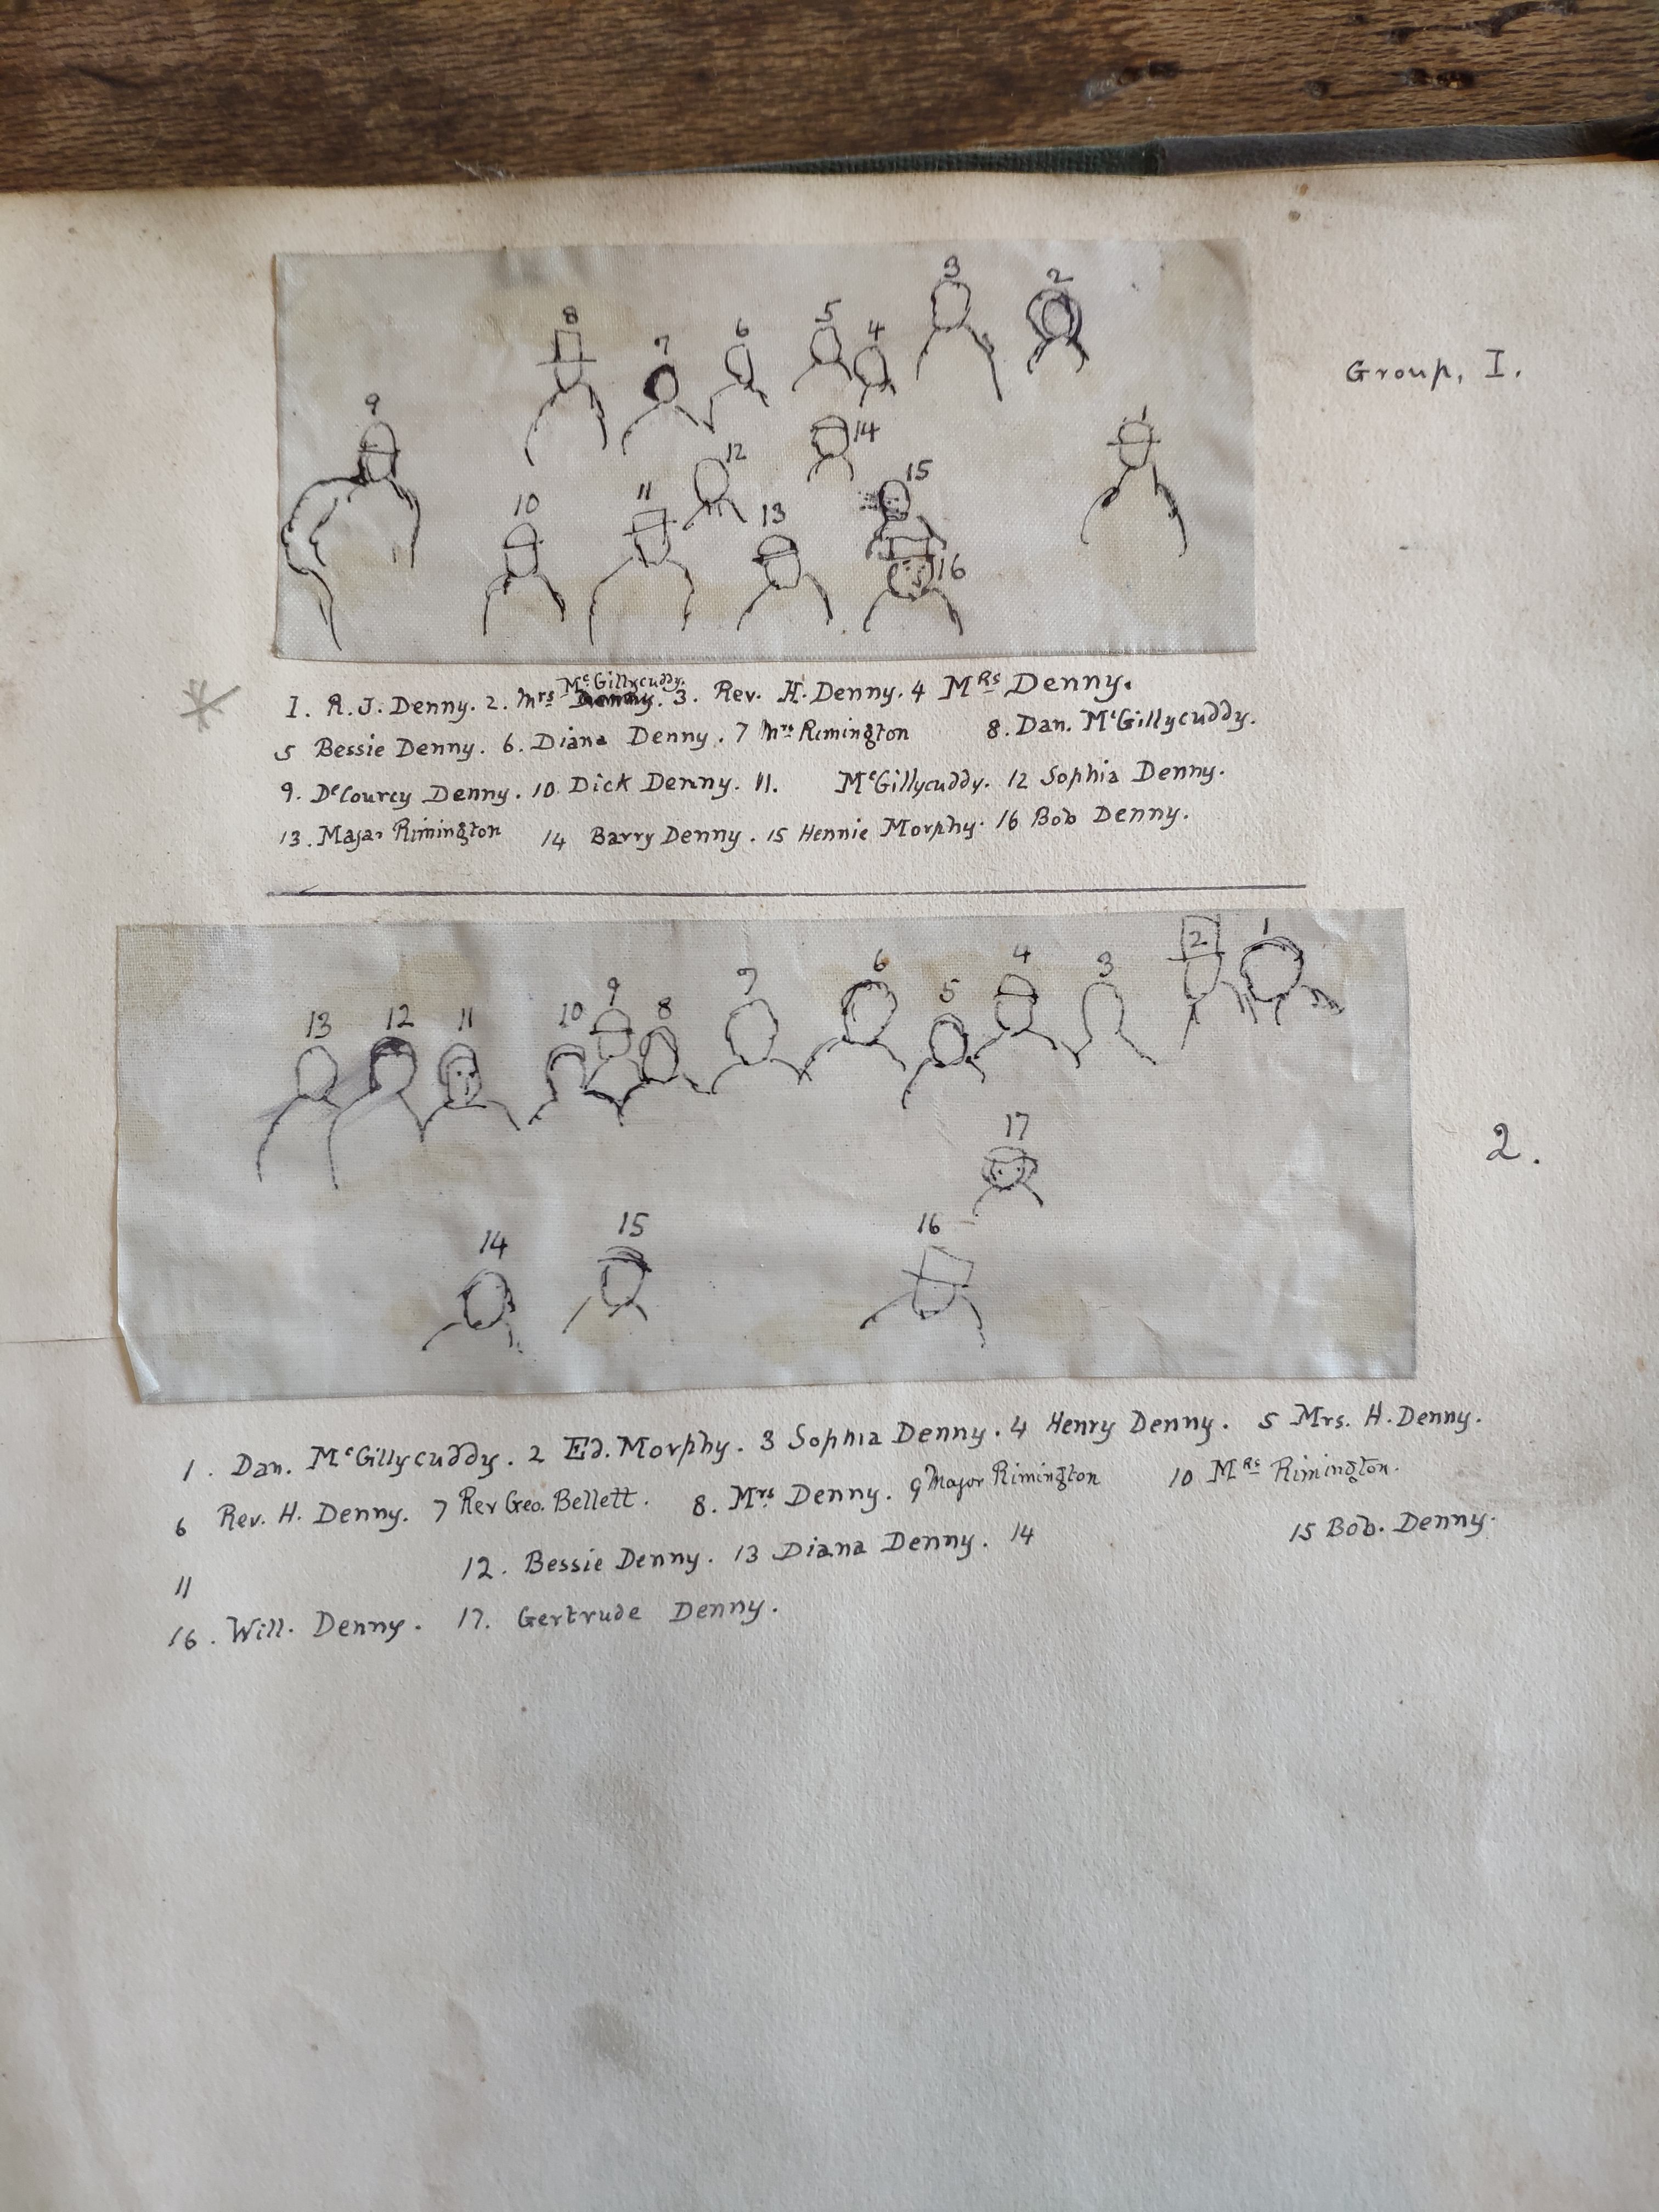 3 2
8 7 6 5 4
9 14 1
12 15
10 11 13
16
Group, I.
McGillycuddy.
1. R.J. Denny. 2. Mrs Denny. 3. Rev. H. Denny. 4 MRS Denny.
5 Bessie Denny. 6. Diana Denny. 7 Mrs Rimington 8. Dan. McGillycuddy.
9. DeCourcy Denny. 10. Dick Denny. 11. McGillycuddy. 12 Sophia Denny.
13. Major Rimington 14 Barry Denny. 15 Hennie Morphy. 16 Bob Denny.
2 1
13 12 11 10 9 8 7 6 5 4 3
17
14 15 16
2.
1. Dan. McGillycuddy. 2 Ed. Morphy. 3 Sophia Denny. 4 Henry Denny. 5 Mrs. H. Denny.
6 Rev. H. Denny. 7 Rev Geo. Bellett. 8. Mrs. Denny. 9 Major Rimington 10 MRS Rimington.
11 12. Bessie Denny. 13 Diana Denny. 14 15 Bob. Denny.
16. Will. Denny. 17. Gertrude Denny.